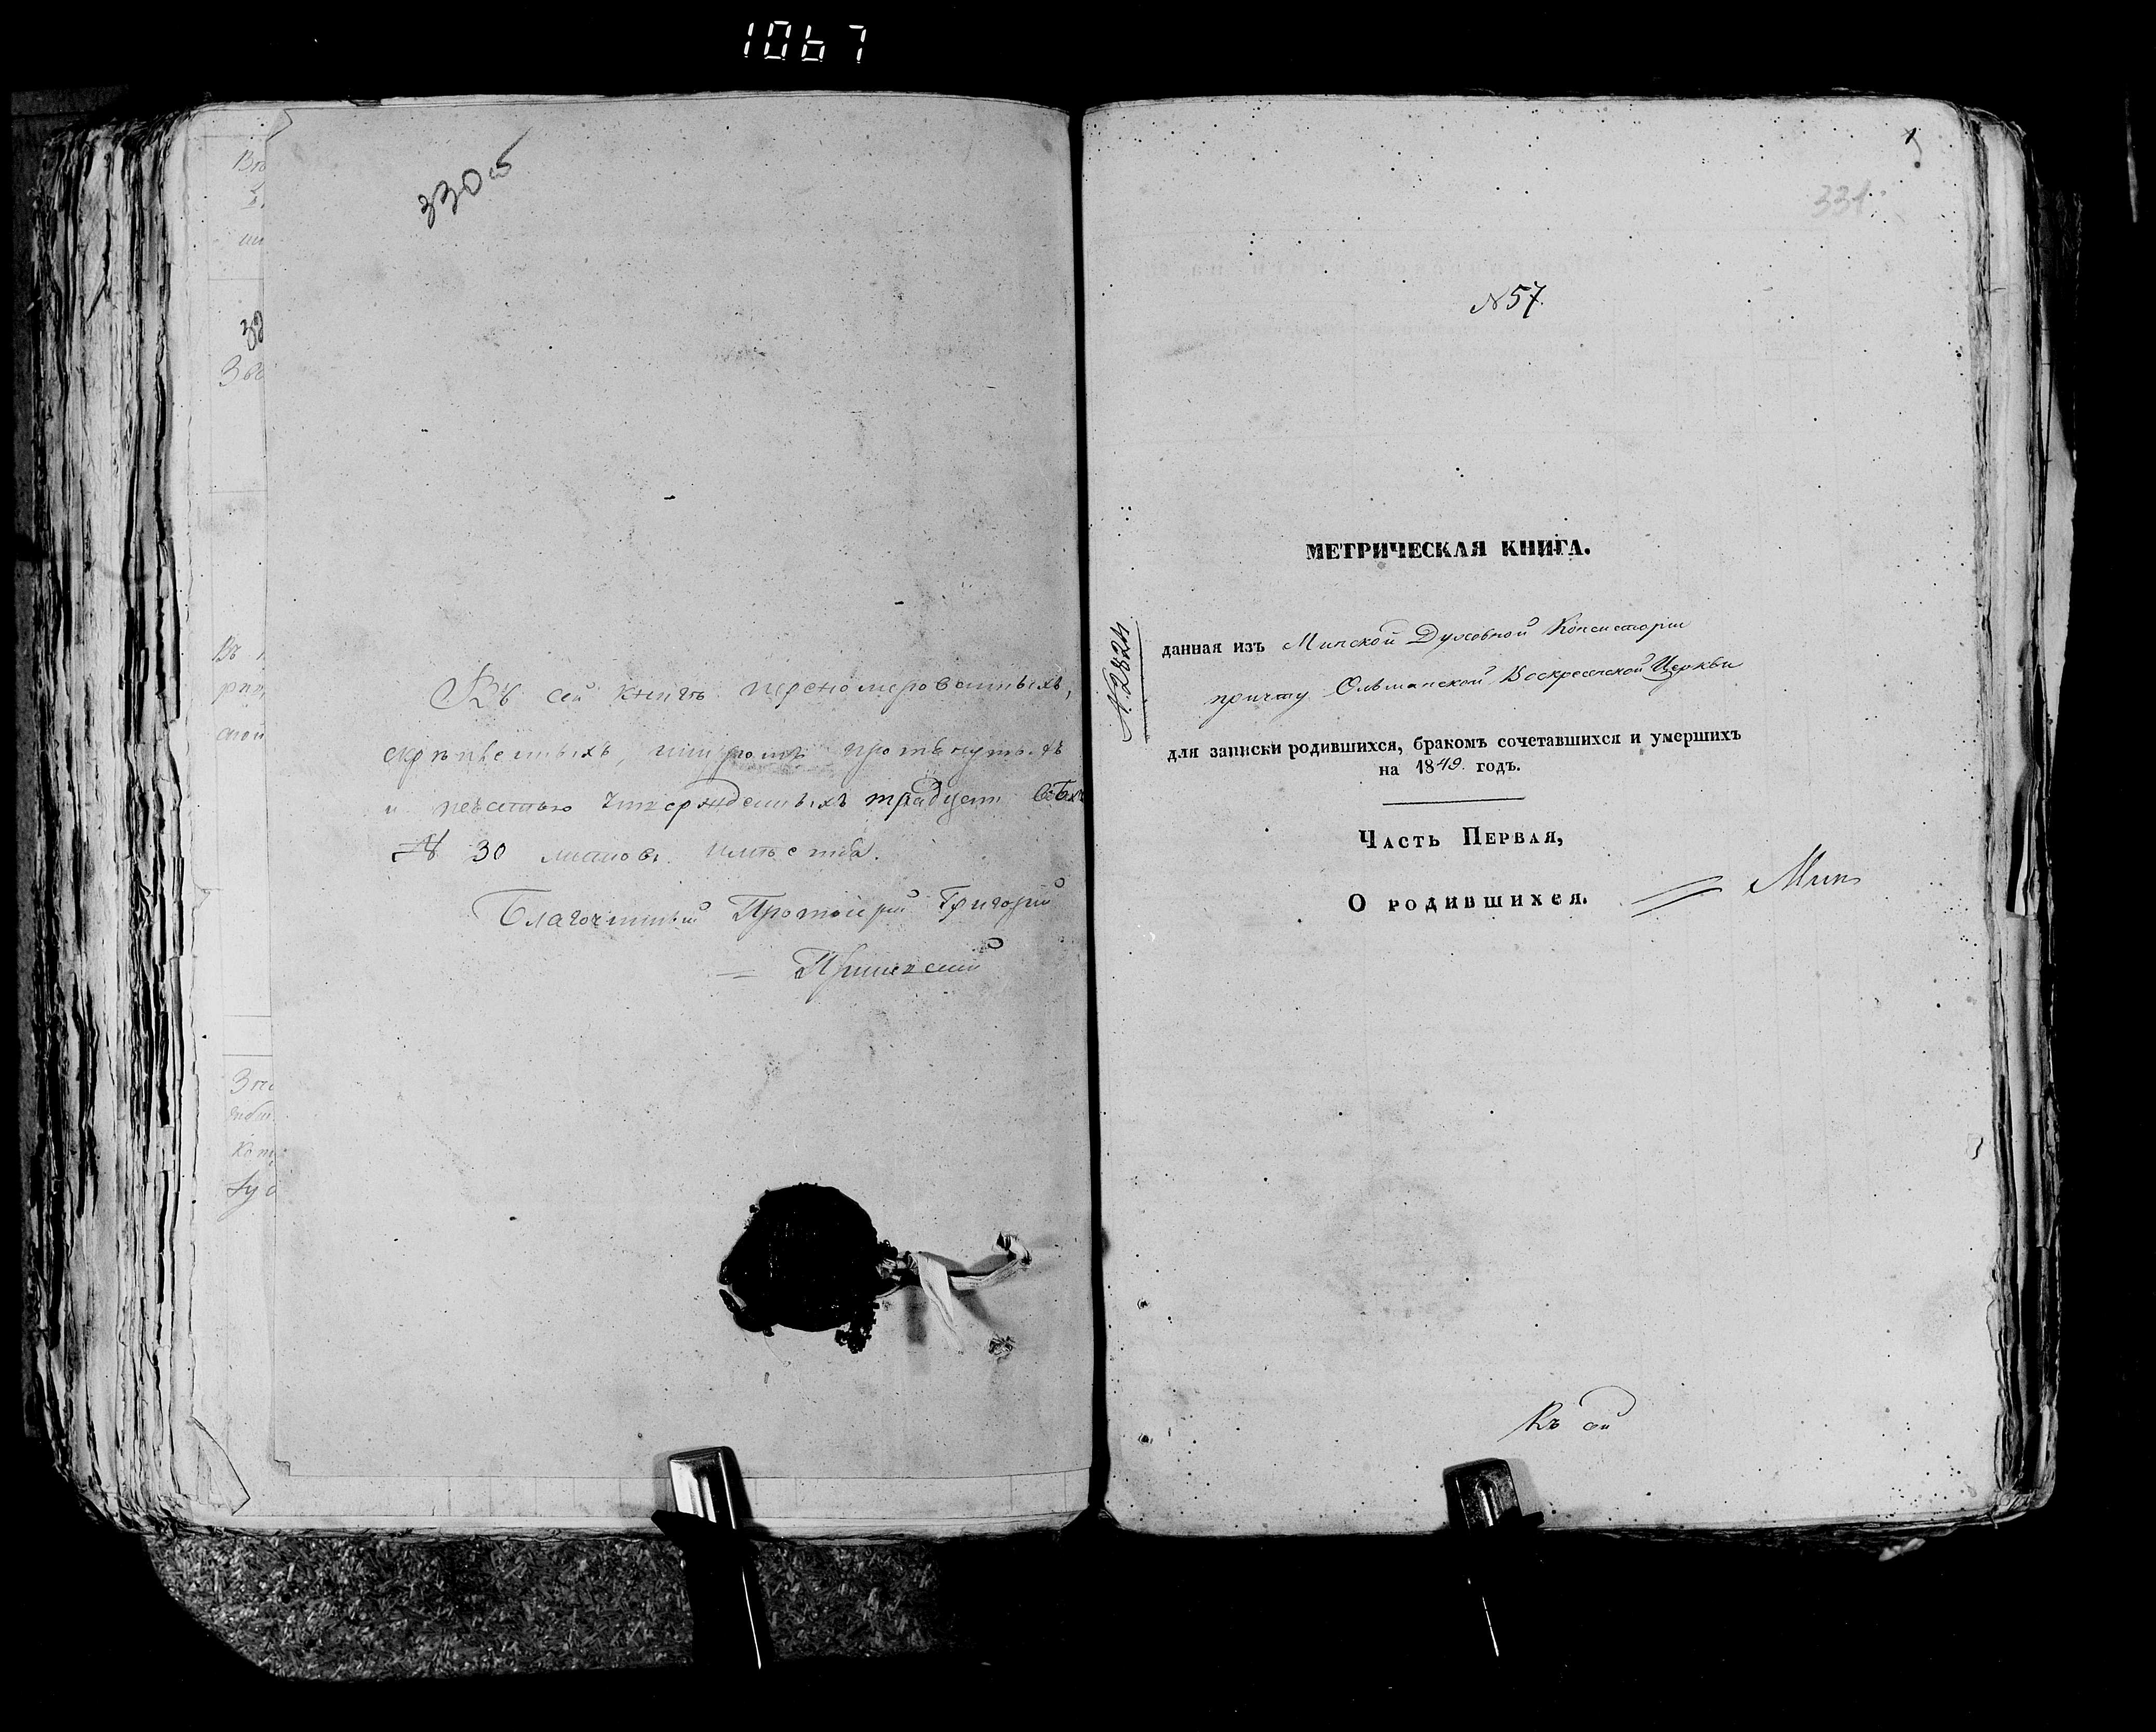 1067
330 об
Въ сей книгѣ перномерованныхъ,
скрѣпленныхъ, шнуромъ протянутыхъ
и печатью утвержденныхъ тридцать всѣхъ
№ 30 листовъ.
Благочинный Протоіерей Григорій
1
331
№ 57.
МЕТРИЧЕСКАЯ КНИГА.
№ 2824
данная изъ Минской Духовной Консисторіи
причту Ольманской Воскресенской Церкви
для записки родившихся, бракомъ сочетавшихся и умершихъ
на 1849 годъ.
Часть Первая,
О родившихся.
Мин
Къ сей